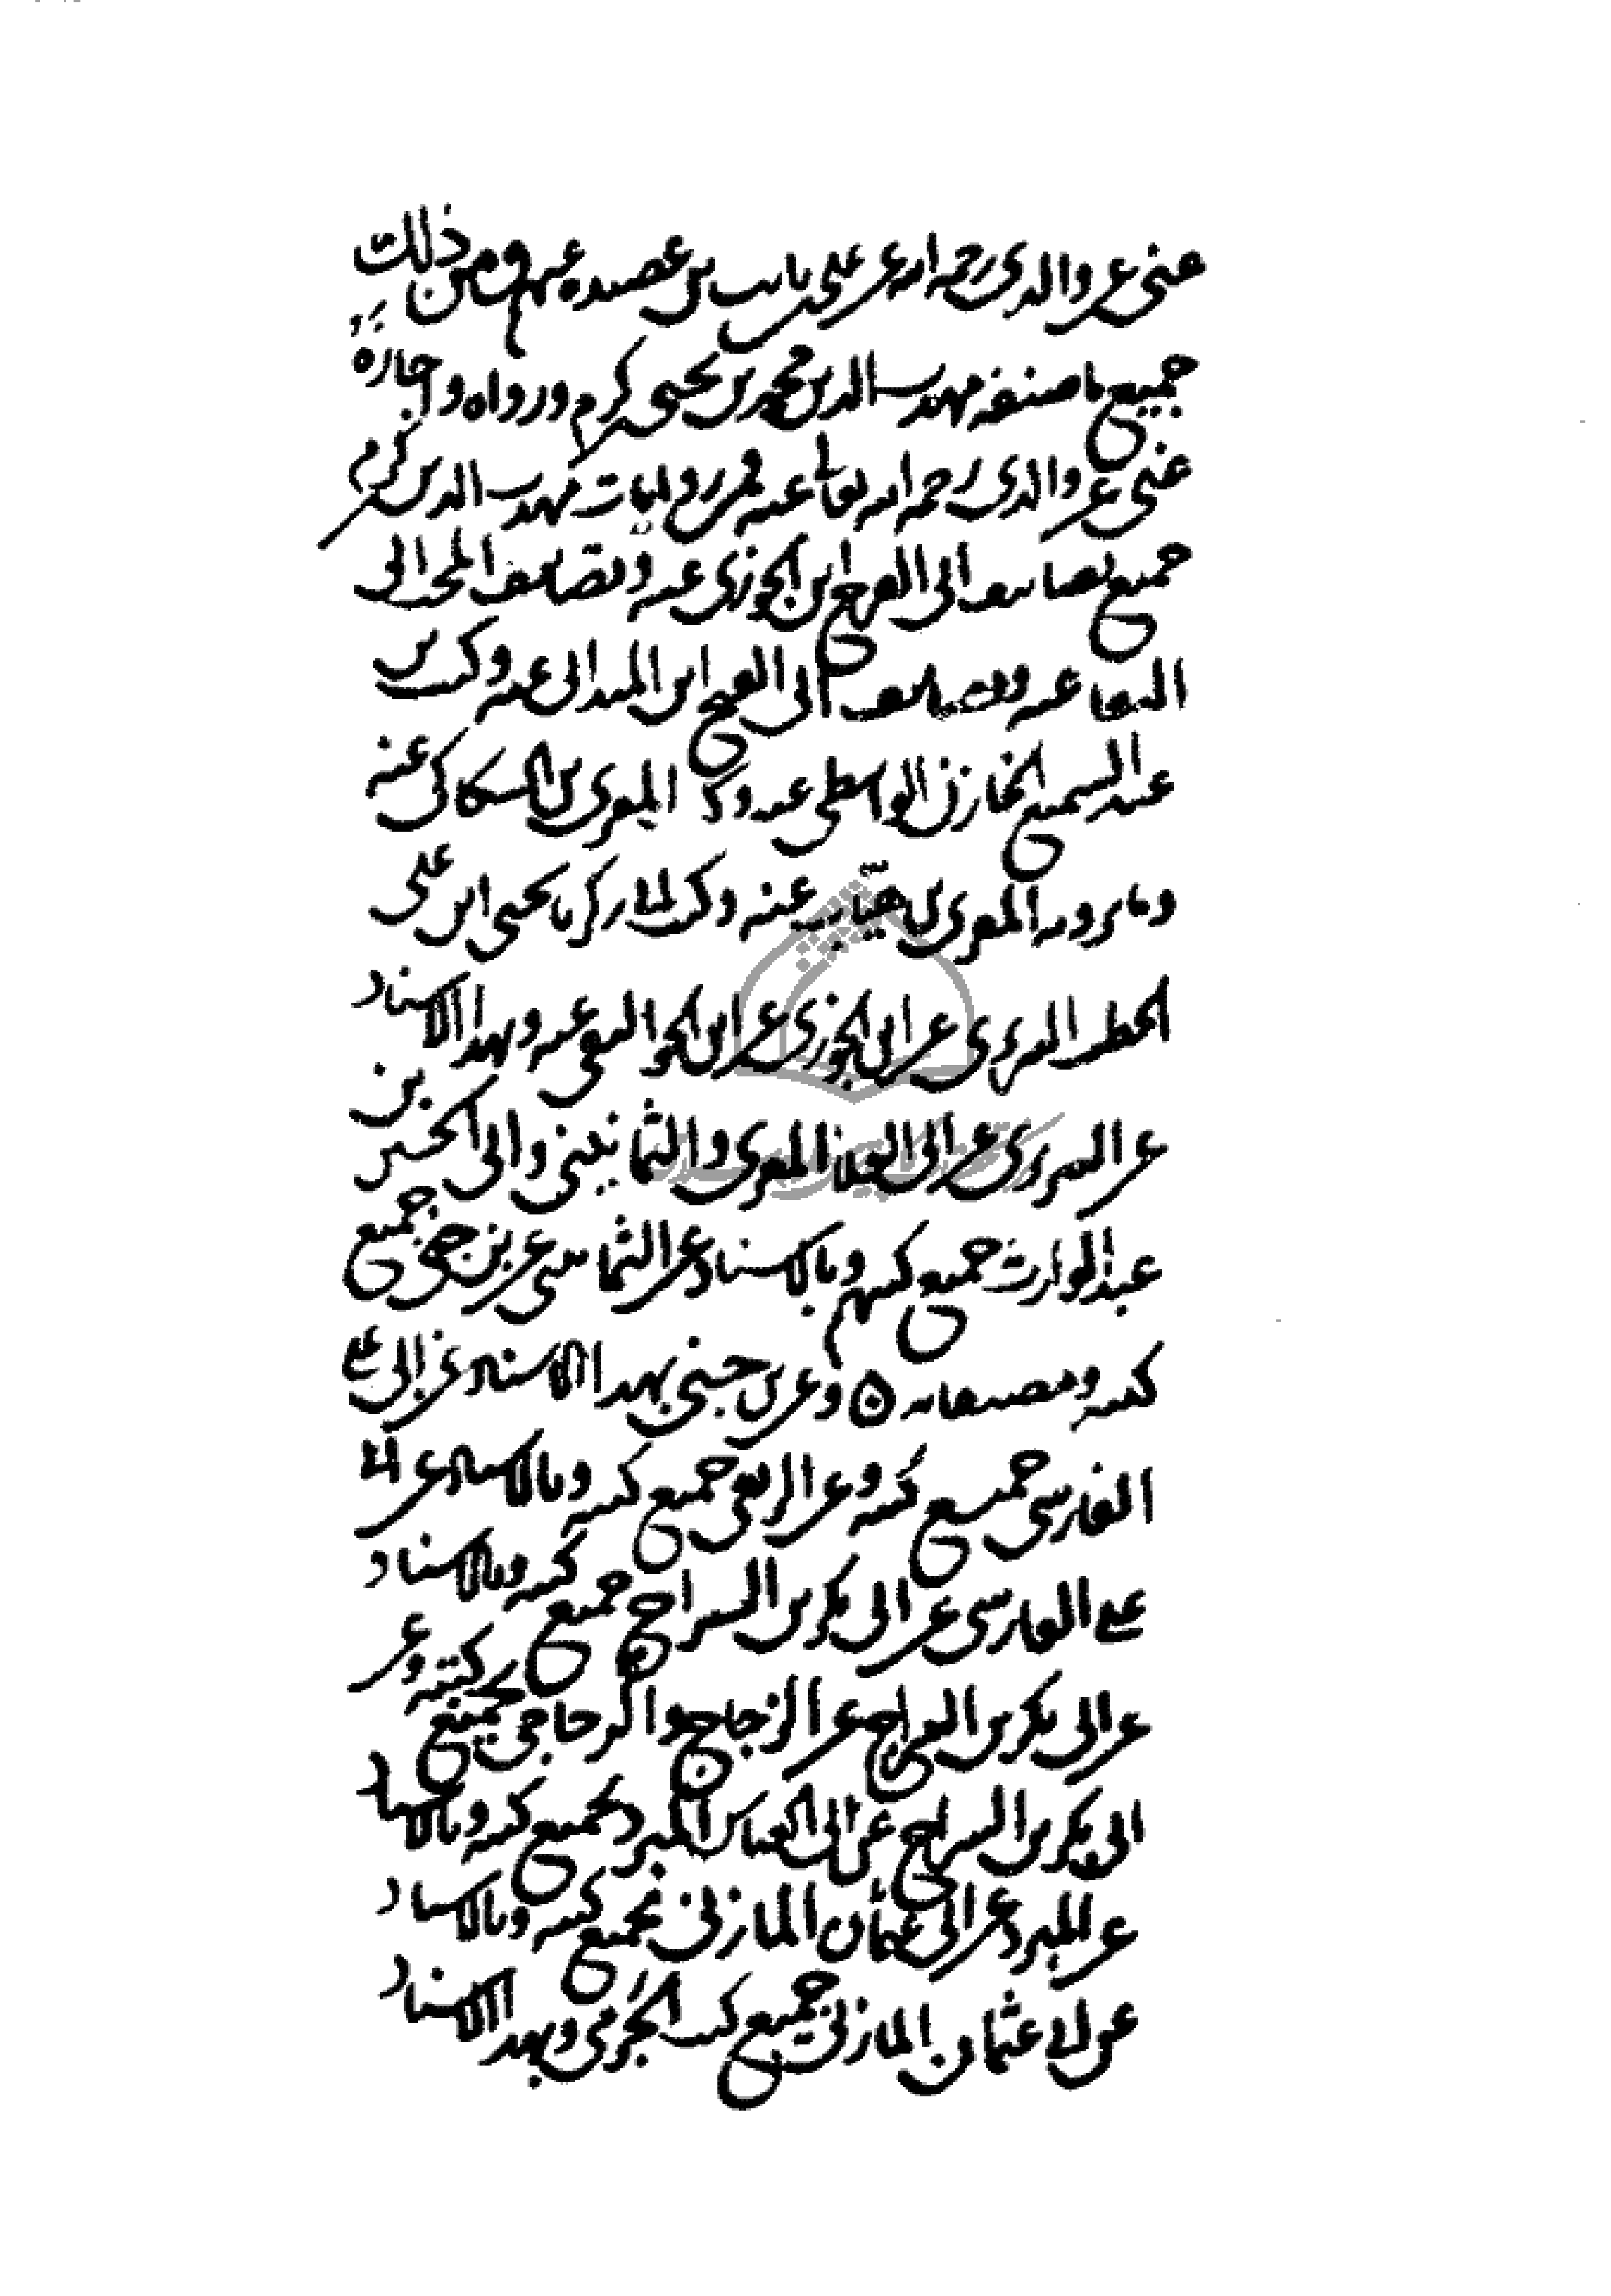 عنى عن والدى رحمه الله عن على بن ثابت بن عصيده عنهم ومن ذلك
جميع ما صنفه مهذب الدين محمد بن يحيى كرم ورواه واجازه
عنى عن والدى رحمه الله تعالى عنه فمن روايات مهذب الدين كرم
جميع تصانيف ابى الفرج ابن الجوزى عنه وتصانيف المحب ابى
البقا عنه وتصانيف ابى الفتح ابن الميدانى عنه وكتب بن
عبد السميع الخازن الواسطى عنه وكذا المقرى بن السكاكى عنه
وما يرويه المقرى عنه وكذلك زكريا يحيى ابن على
الخطيب التبريزى عن ابن الجوزى عن ابن الجواليقى عنه وبهذا الاسناد
عن التبريزى عن ابى العلاء المعرى والثمانينى وابى الحسن بن
عبد الوارث جميع كتبهم وبالاسناد عن الثمانينى عن بن جنى جميع
كتبه ومصنفاته ٥ وعن بن جنى بهذا الاسناد عن ابى على
الفارسى جميع كتبه وعن الربعى جميع كتبه وبالاسناد عن ابى
على الفارسى عن ابى بكر بن السراج جميع كتبه وبالاسناد
عن ابى بكر بن السراج عن الزجاج والزجاجى بجميع كتبه وعن
ابى بكر بن السراج عن ابى العباس المبرد بجميع كتبه وبالاسناد
عن المبرد عن ابى عثمان المازنى بجميع كتبه وبالاسناد
عن ابى عثمان المازنى جميع كتب الجرمى وبهذا الاسناد